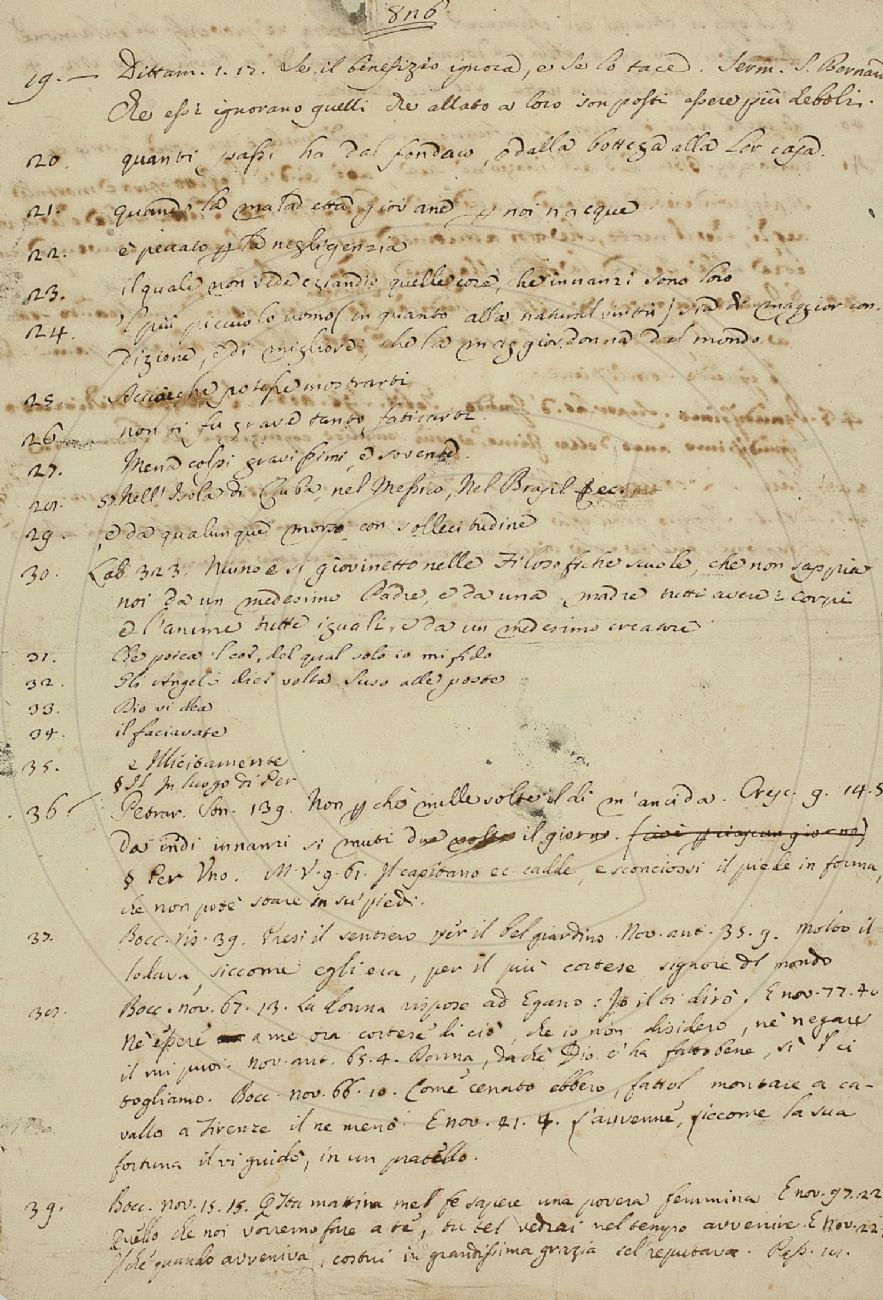 826
19. — Dittam. 1. 12. Se il benefizio ignora, e se lo tace. Serm. S. Bernar
Che essi ignorano quelli che allato a loro son posti essere più deboli.
20. quanti passi ha dal fondaco, o dalla bottega alla lor casa.
21. quando la matta età giovane noi nacque
22. è peccato la negligenzia
23. il quale non vede eziandio quelle cose, che innanzi sono loro
24. Il più picciolo uomo (in quanto alla natural virtù) sia di maggior con-
dizione, e di migliore, che la maggior donna del mondo
25. Acciocchè potesse mostrarti
26. non ti fu grave tanto faticarti.
27. Mena colpi gravissimi, e sovente.
28. Nell' Isola di Cuba, nel Messico, Nel Brasil
29. , e da qualunque morto con sollecitudine
30. Lab. 323. Niuno è sì giovinetto nelle Filosofiche scuole, che non sappia
noi da un medesimo Padre, e da una madre tutti avere i corpi
e l'anime tutte iguali, e da un medesimo creatore
31. Che potea 'l cor, del qual solo io mi fido
32. Gli Angeli dieci volte suso alle poste
33. Dio vi dea
34. il faciavate
35. e Illicitamente
§ Il In luogo di Per
36. Petrar. Son. 139. Non chè mille volte il dì m'ancida. Cresc. 9. 14. 5
da indi innanzi si muti due volte il giorno. (cioè ciascun giorno)
§ Per Uno. M. V. 9. 61. Il capitano ec. cadde, e sconciossi il piede in forma,
che non potè stare in su' piedi.
37. Bocc. Vis. 39. Presi il sentiero per il bel giardino. Nov. ant. 35. 9. Molto il
lodava, siccome egli era, per il più cortese signore del mondo
38. Bocc. nov. 67. 13. La donna rispose ad Egano: Io il ti dirò. E nov. 77. 40
Nè essere a me ora cortese di ciò, che io non disidero, nè negare
il mi puoi. Nov. ant. 65. 4. Donna, dachè Dio ci ha fatto bene, sì 'l ci
togliamo. Bocc. nov. 66. 10. Come cenato ebbero, fattol montare a ca-
vallo a Firenze il ne menò. E nov. 41. 4. s'avvenne, siccome la sua
fortuna il vi guidò, in un pratello.
39. Bocc. nov. 15. 15. Questa mattina mel fe sapere una povera femmina E nov. 97. 22
Quello che noi vorremo fare a te, tu tel vedrai nel tempo avvenire. E nov. 22.
Il chè quando avveniva, costui in grandissima grazia sel reputava.